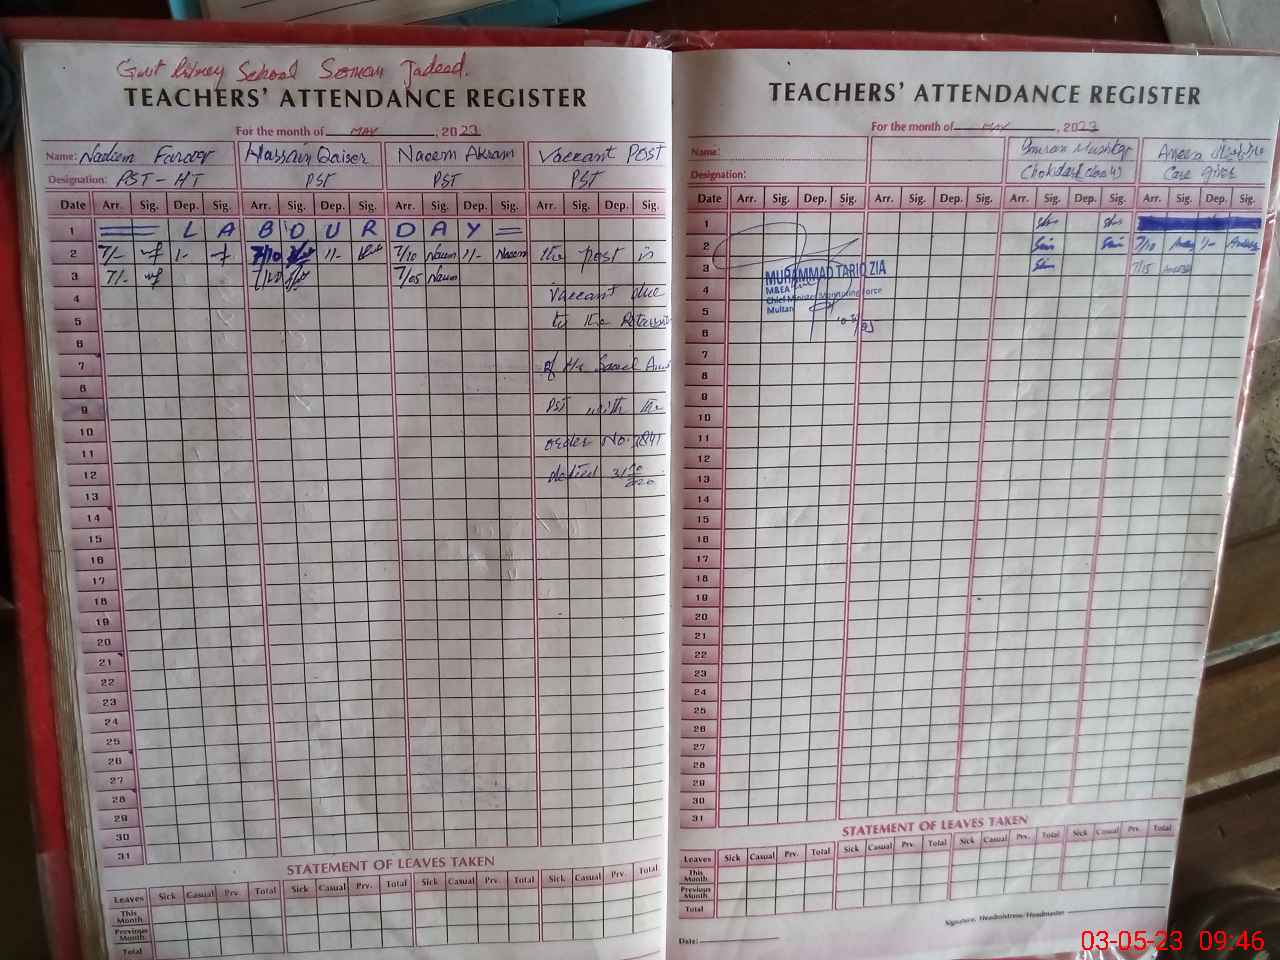 Govt School Jadeed.
TEACHERS' ATTENDANCE REGISTER
For the month of MAY, 2023
Name: Nadeem Farooq Hassain Qaiser Naeem Akram Vaccant POST
Designation: PST - HT PST PST PST
Date Arr. Sig. Dep. Sig. Arr. Sig. Dep. Sig. Arr. Sig. Dep. Sig. Arr. Sig. Dep. Sig.
1 L A B O U R D A Y
2 7/- 1- 7/10 11/- 7/10 Naeem 11/- Naeem the post is
3 7/- 7/10 7/05 Naeem
4 vaccant due
5 to the
6
7 of Mr
8
9 PST with the
10
11 order No. 1841
12 dated 31
13
14
15
16
17
18
19
20
21
22
23
24
25
26
27
28
29
30
31
STATEMENT OF LEAVES TAKEN
Leaves Sick Casual Prv. Total Sick Casual Prv. Total Sick Casual Prv. Total Sick Casual Prv. Total
This Month
Previous Month
Total
TEACHERS' ATTENDANCE REGISTER
For the month of MAY, 2023
Name:
Designation: Care Giver
Date Arr. Sig. Dep. Sig. Arr. Sig. Dep. Sig. Arr. Sig. Dep. Sig. Arr. Sig. Dep. Sig.
1
2 7/10 1/-
3 7/15
MUHAMMAD TARIQ ZIA
4 M&EA
Chief Minister Monitoring Force
5 Multan
6
7
8
9
10
11
12
13
14
15
16
17
18
19
20
21
22
23
24
25
26
27
28
29
30
31
STATEMENT OF LEAVES TAKEN
Leaves Sick Casual Prv. Total Sick Casual Prv. Total Sick Casual Prv. Total Sick Casual Prv. Total
This Month
Previous Month
Total
Signature, Headmistress/Headmaster
Date:
03-05-23 09:46